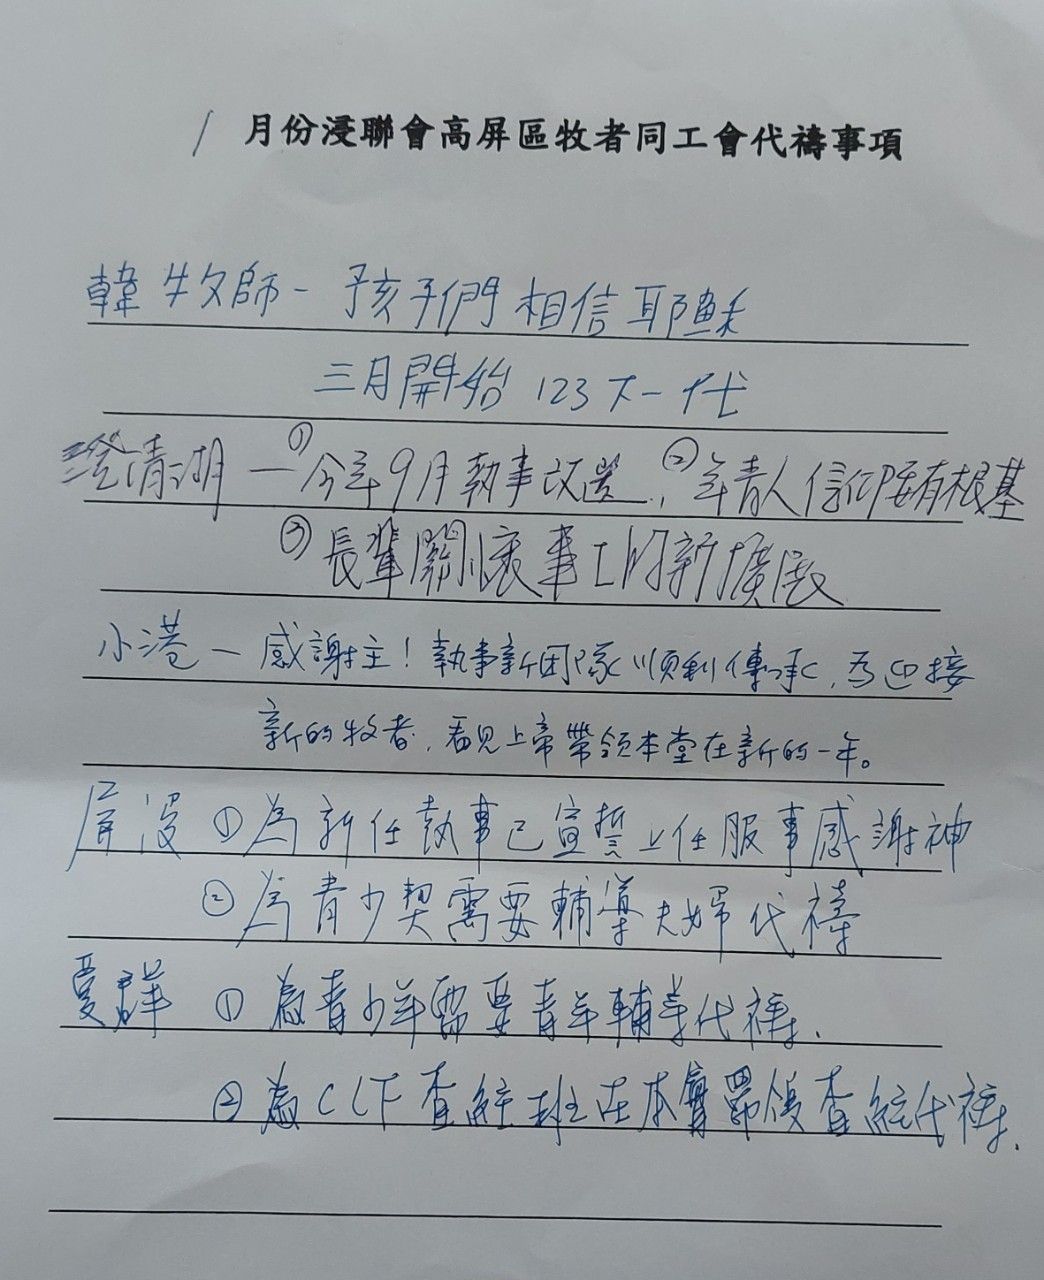 1 月份浸聯會高屏區牧者同工會代禱事項
韓牧師- 孩子們相信耶穌
三月開始 123下一代
澄清湖 — ①今年9月執事改選, ②年青人信仰要有根基
③長輩關懷事工的新擴展
小港 — 感謝主！執事新团隊順利傳承, 為迎接
新的牧者, 看見上帝帶領本堂在新的一年。
屏浸 ①為新任執事已宣誓上任服事感謝神
②為青少契需要輔導夫婦代禱
①為青少年需要青年輔導代禱.
②為CLF查經班在本會帶領查經代禱.